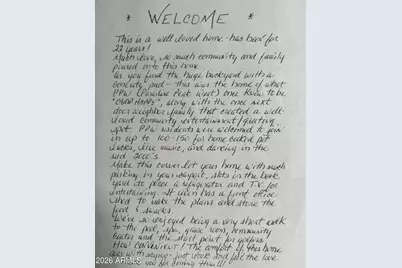 * WELCOME *
This is a well loved home - has been for
22 years!
Much love, so much community and family
poured into this home
As you find the huge backyard with a
concrete pad - this was the home of what
PPW (Paradise Peak West) once knew to be
along with the one next
door neighbor family that created a well
loved community entertainment/gathering
spot. PPW residents were welcomed to join
in up to 100-150 for home cooked pot
lucks, live music, and dancing in the
mid 2000's.
Make this corner lot your home with much
parking in your carport, slots in the back
yard to place a refrigerator and TV for
entertaining. It even has a front office
shed to make the plans and store the
food & snacks.
We've so enjoyed being a very short walk
to the pool, spa, game room, community
center and the start point for
How convenient! The comfort of this home
and feel the love
you for
2026 ARMLS